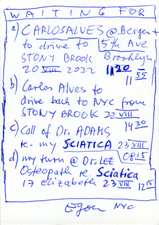 WAITING FOR
a) CARLOS ALVES @ Bergen +
to drive to 5th Ave
STONY BROOK Brooklyn
20 VIII 2022 1120
1155
b) Carlos Alves to
drive back to NYC from
STONY BROOK 22 VIII
1430
c) Call of Dr. ADAMS
re. my SCIATICA 23 VIII
0815
d) my turn @ Dr. LEE
Osteopath re. Sciatica
17 Elizabeth 23 VIII 1215
NYC